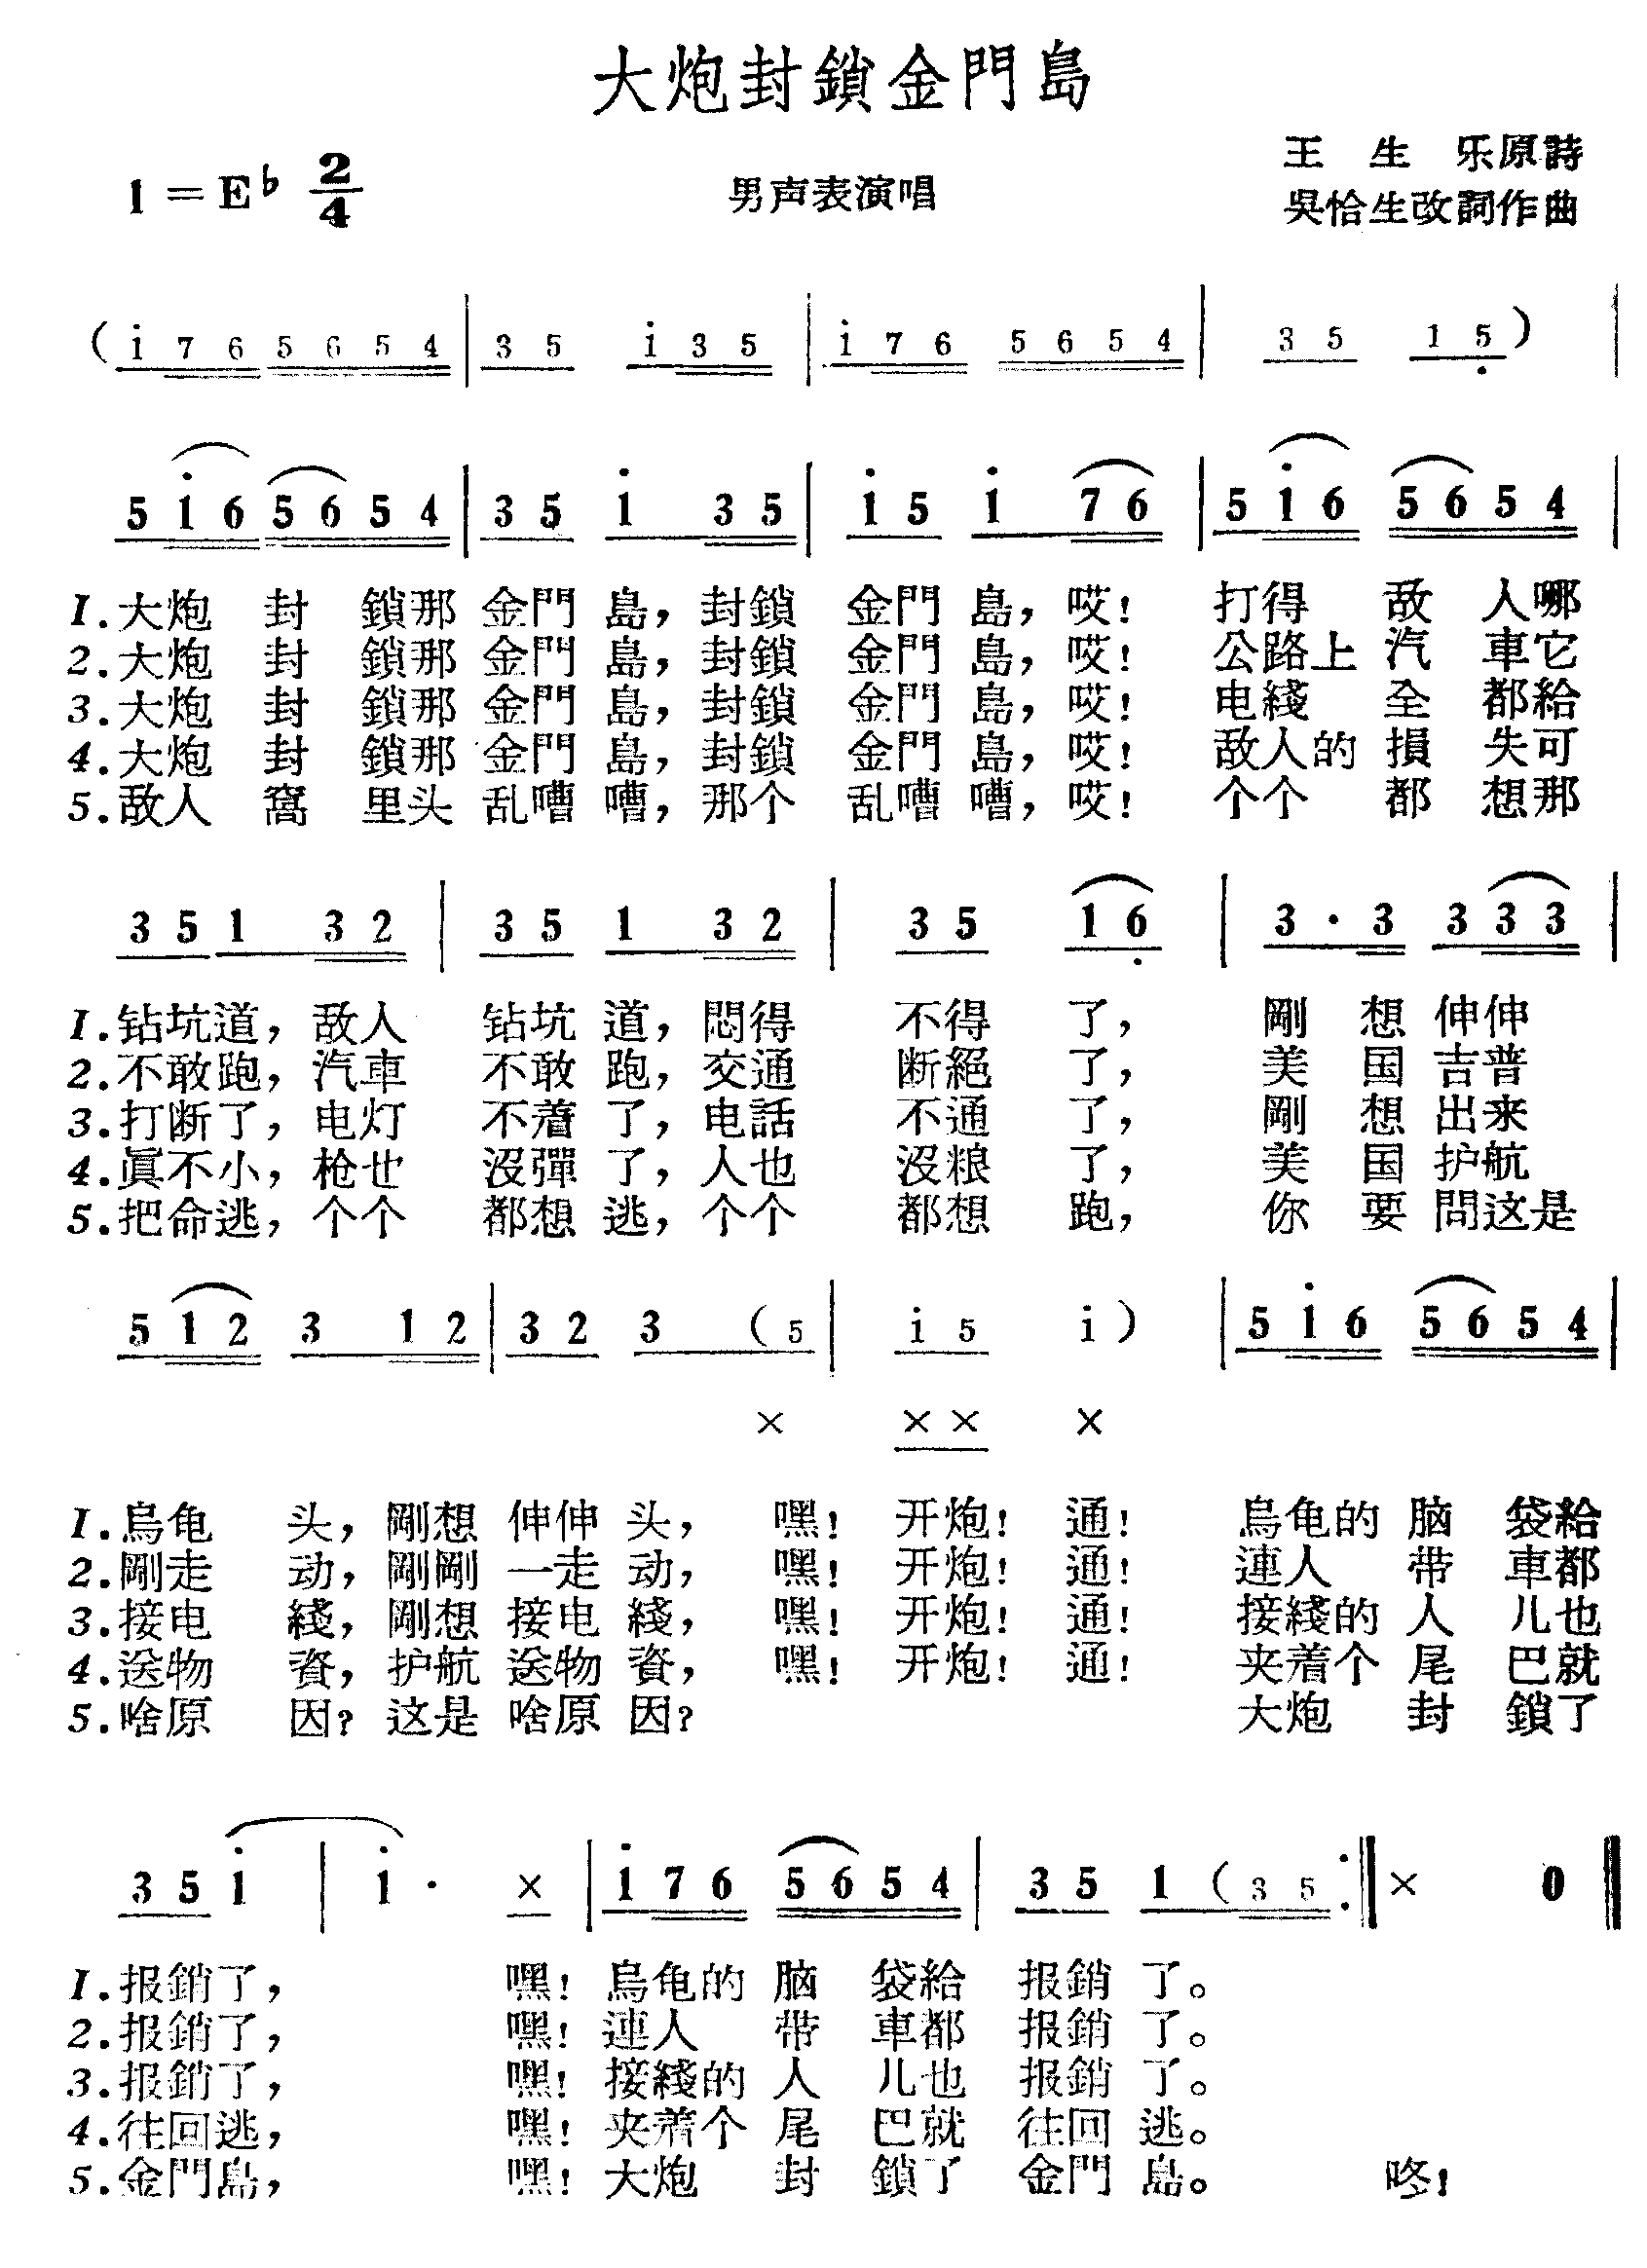 大炮封鎖金門島
王 生 乐原詩
1=E♭ 2/4 男声表演唱 吳恰生改詞作曲
( i 7 6 5 6 5 4 | 3 5 i 3 5 | i 7 6 5 6 5 4 | 3 5 1 5 ) |
5 i 6 5 6 5 4 | 3 5 i 3 5 | i 5 i 7 6 | 5 i 6 5 6 5 4 |
1.大炮 封 鎖那 金門 島，封鎖 金門 島，哎！ 打得 敌 人哪
2.大炮 封 鎖那 金門 島，封鎖 金門 島，哎！ 公路上 汽 車它
3.大炮 封 鎖那 金門 島，封鎖 金門 島，哎！ 电綫 全 都給
4.大炮 封 鎖那 金門 島，封鎖 金門 島，哎！ 敌人的 損 失可
5.敌人 窩 里头 乱嘈 嘈，那个 乱嘈 嘈，哎！ 个个 都 想那
3 5 1 3 2 | 3 5 1 3 2 | 3 5 1 6 | 3 · 3 3 3 3 |
1.钻坑道，敌人 钻坑 道，悶得 不得 了， 剛 想 伸伸
2.不敢跑，汽車 不敢 跑，交通 断絕 了， 美 国 吉普
3.打断了，电灯 不着 了，电話 不通 了， 剛 想 出来
4.眞不小，枪也 沒彈 了，人也 沒粮 了， 美 国 护航
5.把命逃，个个 都想 逃，个个 都想 跑， 你 要 問这是
5 1 2 3 1 2 | 3 2 3 ( 5 | i 5 i ) | 5 i 6 5 6 5 4 |
× × × ×
1.烏龟 头，剛想 伸伸 头， 嘿！ 开炮！ 通！ 烏龟的 脑 袋給
2.剛走 动，剛剛 一走 动， 嘿！ 开炮！ 通！ 連人 带 車都
3.接电 綫，剛想 接电 綫， 嘿！ 开炮！ 通！ 接綫的 人 儿也
4.送物 資，护航 送物 資， 嘿！ 开炮！ 通！ 夹着个 尾 巴就
5.啥原 因？这是 啥原 因？ 大炮 封 鎖了
3 5 i | i · × | i 7 6 5 6 5 4 | 3 5 1 ( 3 5 :‖ × 0 ‖
1.报銷了， 嘿！烏龟的 脑 袋給 报銷 了。
2.报銷了， 嘿！連人 带 車都 报銷 了。
3.报銷了， 嘿！接綫的 人 儿也 报銷 了。
4.往回逃， 嘿！夹着个 尾 巴就 往回 逃。
5.金門島， 嘿！大炮 封 鎖了 金門 島。 咚！